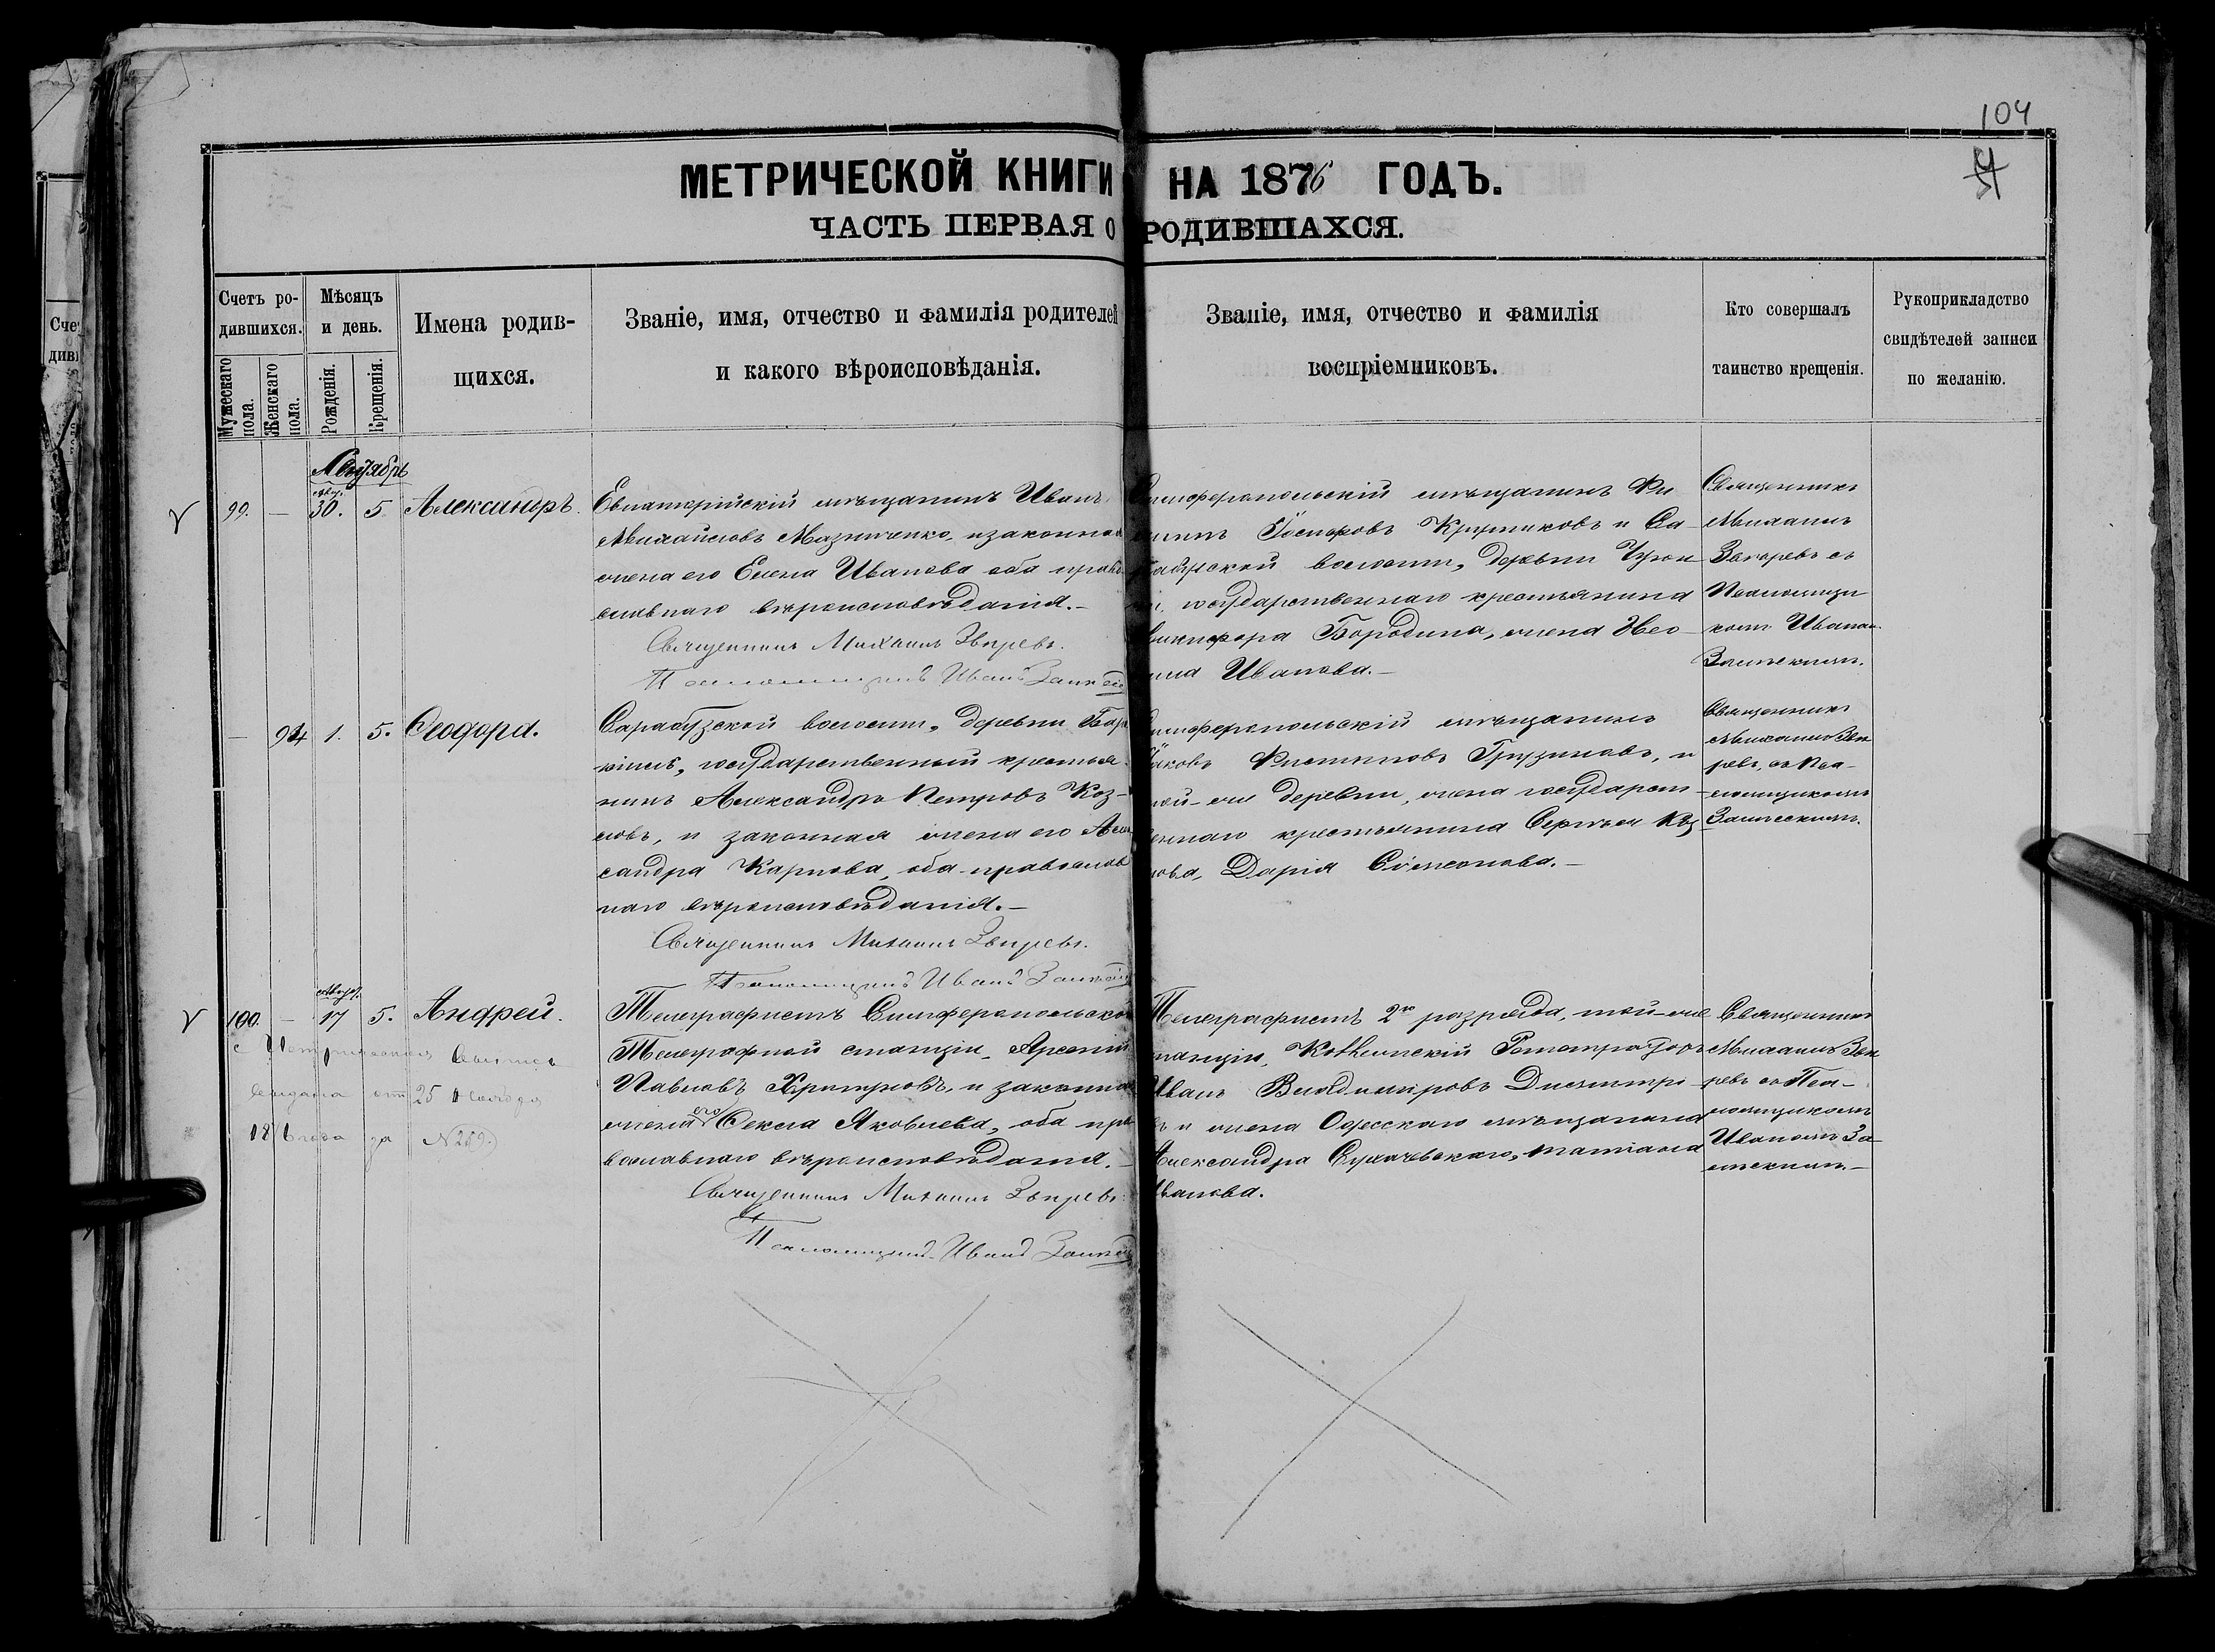 104
МЕТРИЧЕСКОЙ КНИГИ НА 1876 ГОДЪ.
ЧАСТЬ ПЕРВАЯ О РОДИВШАХСЯ.
Счетъ ро-
дившихся.
Мужескаго пола.
Женскаго пола.
Мѣсяцъ
и день.
Рожденія.
Крещенія.
Имена родив-
щихся.
Званіе, имя, отчество и фамилія родителей
и какого вѣроисповѣданія.
Званіе, имя, отчество и фамилія
воспріемниковъ.
Кто совершалъ
таинство крещенія.
Рукоприкладство
свидѣтелей записи
по желанію.
99. — 30. 5 Александръ.
Евпаторійскій мѣщанинъ Иванъ
Михайловъ Мазниченко, и законная
жена его Елена Иванова оба право
славнаго вѣроисповѣданія.—
Священникъ Михаилъ Звѣревъ.
Псаломщикъ Иванъ
Симферопольскій мѣщанинъ Фи
Іосифовъ Крутиковъ и Са-
волости, деревни
государственнаго крестьянина
Никифора Бородина, жена
Иванова.—
Священникъ
Михаилъ
Звѣревъ съ
Псаломщи
комъ Иваномъ
— 94 1. 5. Ѳеодора.
Сарабузской волости, деревни
государственный крестья-
нинъ Александръ Петровъ Коз-
ловъ, и законная жена его Алек
сандра Карпова, оба православ
наго вѣроисповѣданія.—
Священникъ Михаилъ Звѣревъ.
Псаломщикъ Иванъ
Симферопольскій мѣщанинъ
Яковъ Грузиновъ, и
той-же деревни, жена государст-
веннаго крестьянина Сергѣя Коз
лова, Дарія Сѵмеонова.—
Священникъ
Михаилъ Звѣ
ревъ, съ Пса-
ломщикомъ
Август.
100. — 17 5. Андрей.
Метрическая выпись
выдана 25
1876 года за №269.
Телеграфистъ Симферопольской
Телеграфной станціи, Арсеній
Павловъ и законная
жена его Ѳекла Яковлева, оба пра
вославнаго вѣроисповѣданія.—
Священникъ Михаилъ Звѣревъ.
Псаломщикъ Иванъ
Телеграфистъ 2го разряда, той-же
станціи, Регистраторъ
Иванъ Владиміровъ Димитрі-
въ и жена Одесскаго мѣщанина
Александра Татіана
Иванова.
Священникъ
Михаилъ Звѣ
ревъ съ Пса-
ломщикомъ
Иваномъ За-